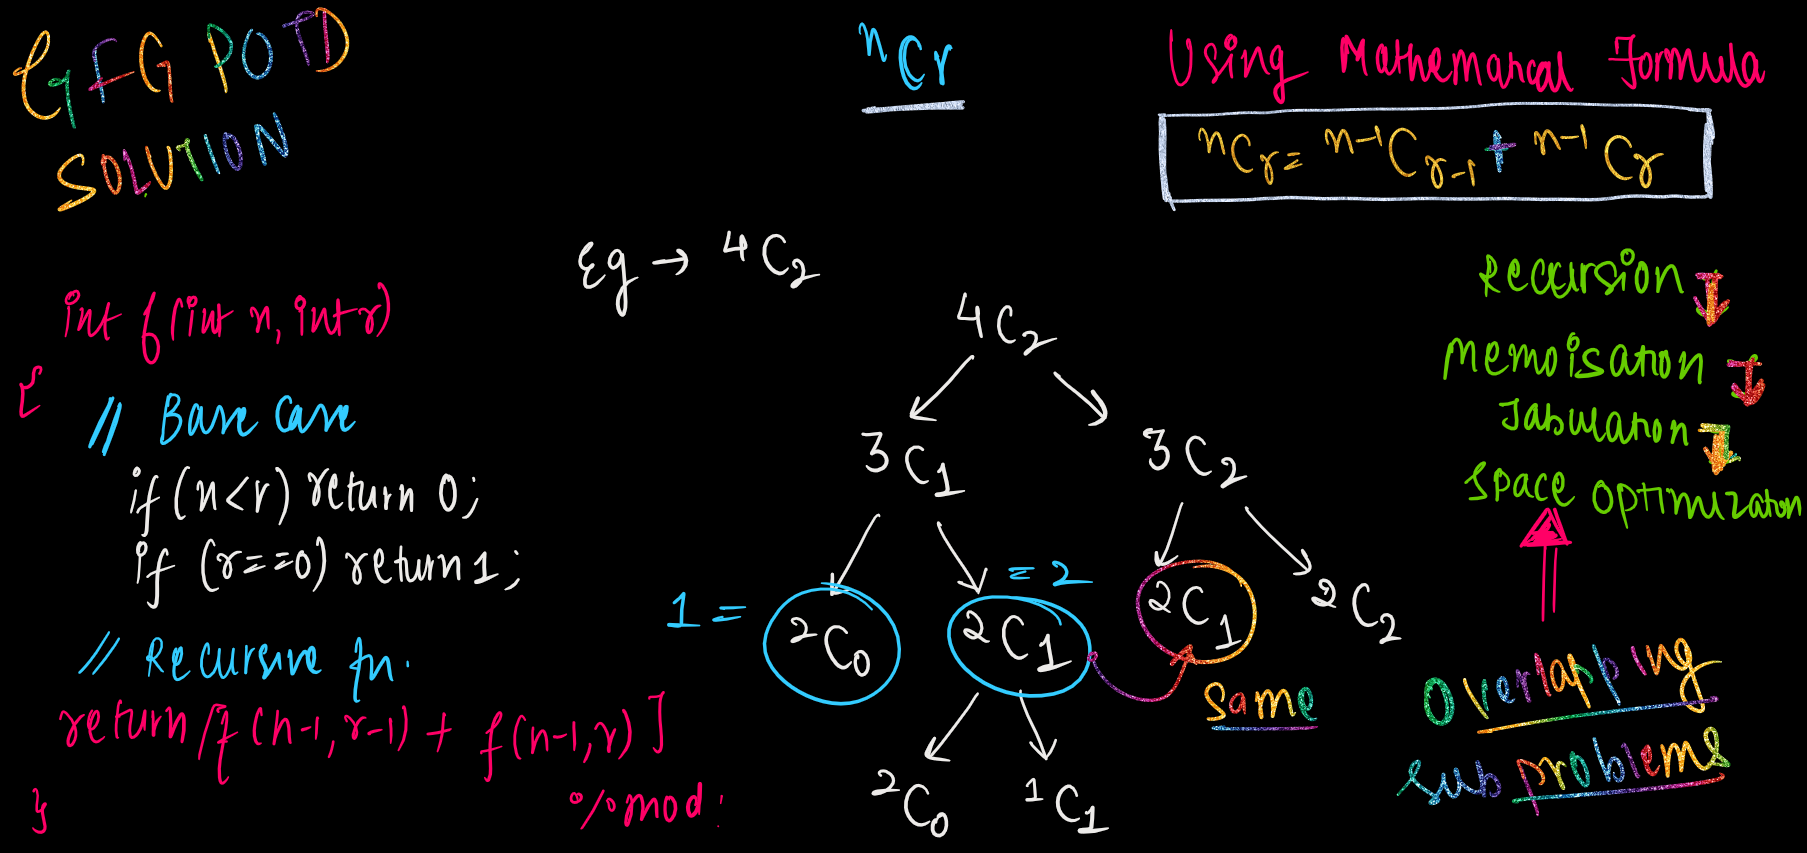 GFG POTD
SOLUTION
nCr
Using Mathematical Formula
nCr = n-1Cr-1 + n-1Cr
Eg → 4C2
int f(int n, int r)
{
// Base Case
if(n<r) return 0;
if (r==0) return 1;
// Recursive fn.
return [f(n-1,r-1) + f(n-1,r)]
%mod;
}
4C2
3C1 3C2
1 = 2C0 2C1 = 2 2C1 2C2
Same
2C0 1C1
Recursion
Memoisation
Tabulation
Space Optimization
Overlapping
sub problems